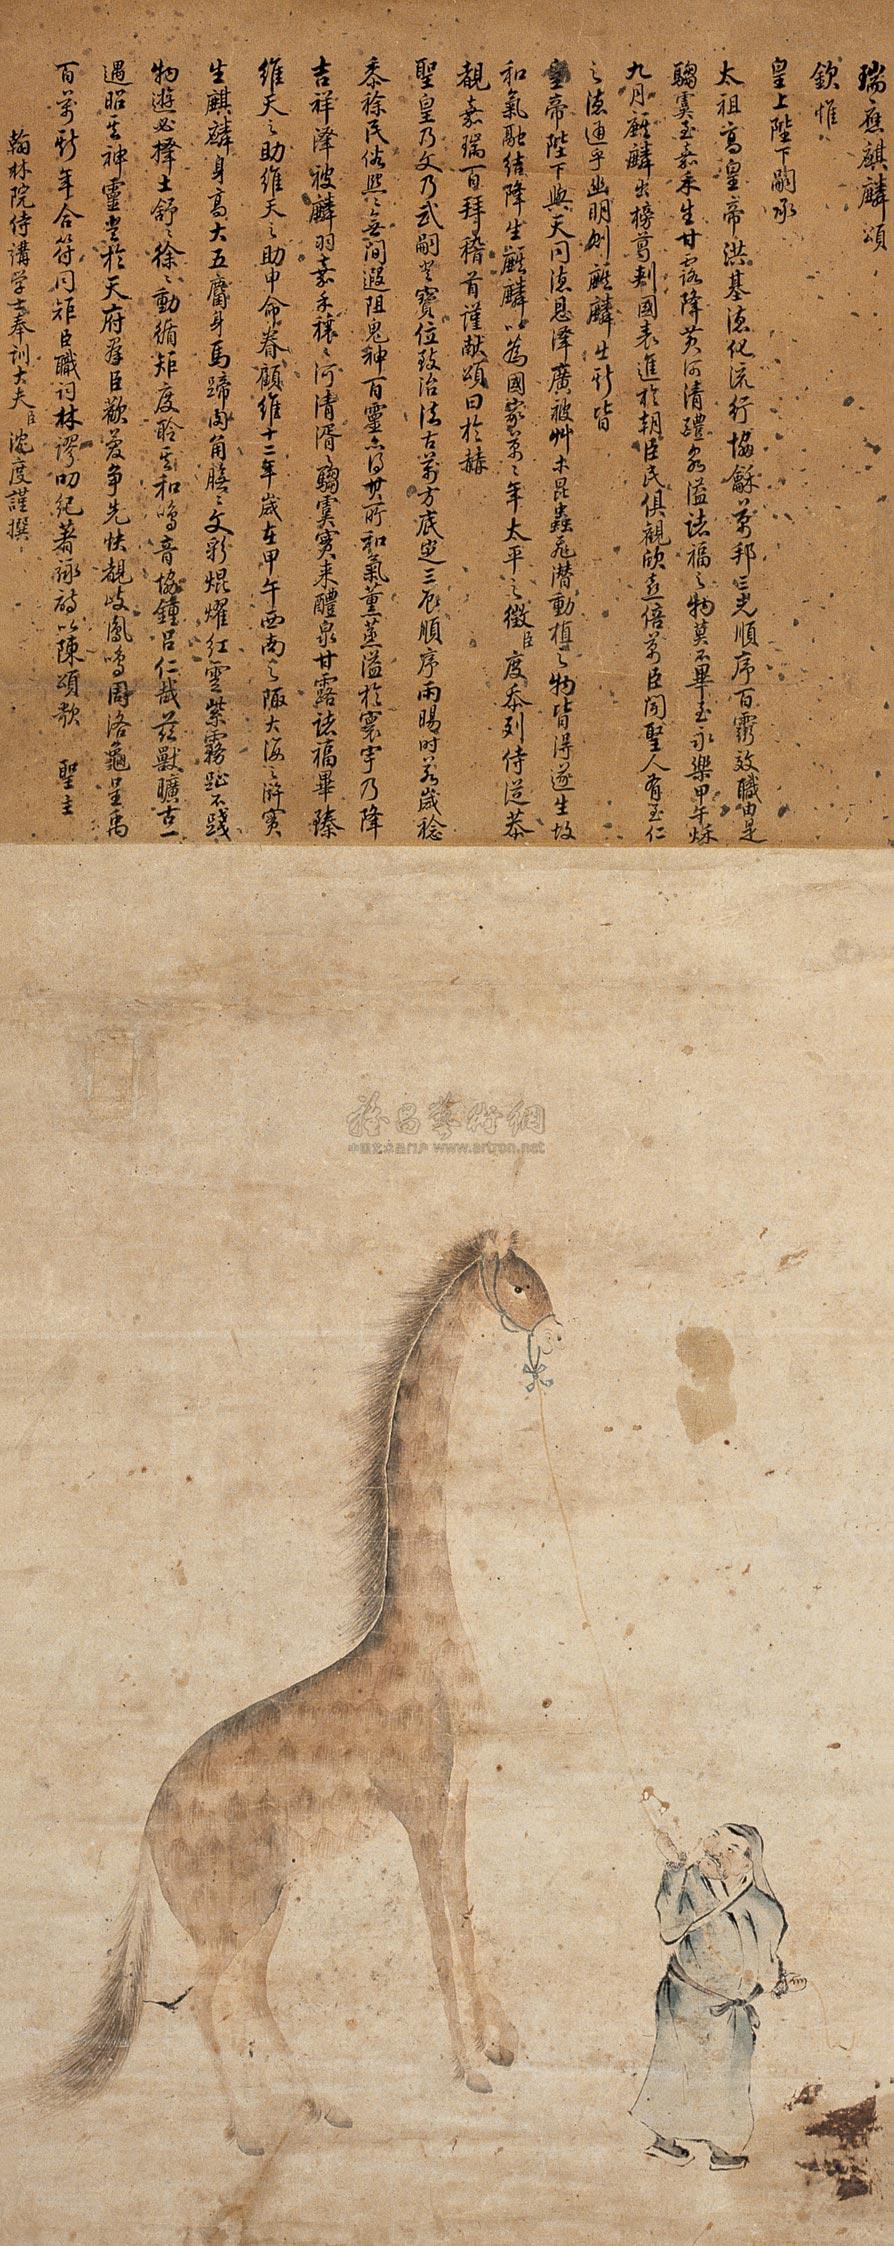 瑞應麒麟頌
欽惟
皇上陛下嗣承
太祖高皇帝洪基德化流行協龢萬邦三光順序百靈效職由是
騶虞至嘉禾生甘露降黃河清醴泉溢諸福之物莫不畢至永樂甲午秋
九月麒麟出榜葛剌國表進於朝臣民俱觀欣喜倍萬臣聞聖人有至仁
之德通乎幽明則麒麟生斯皆
皇帝陛下與天同德恩澤廣被艸木昆蟲飛潛動植之物皆得遂生故
和氣融結降生麒麟以為國家萬萬年太平之徵臣度忝列侍從恭
覩嘉瑞百拜稽首謹献頌曰於赫
聖皇乃文乃武嗣登寶位致治法古萬方底定三辰順序雨暘時若歲稔
黍稌民俗熙熙無間遐阻鬼神百靈亦得其所和氣薰蒸溢於寰宇乃降
吉祥澤被麟羽嘉禾穰穰河清湑湑騶虞實来醴泉甘露諸福畢臻
維天之助維天之助申命眷顧維十二年歲在甲午西南之陬大海之滸實
生麒麟身高大五麕身馬蹄肉角膴膴文彩焜燿紅雲紫霧趾不踐
物遊必擇土舒舒徐徐動循矩度聆其和鳴音協鐘呂仁哉茲獸曠古一
遇昭其神靈登於天府羣臣歡慶爭先快覩岐鳳鳴周洛龜呈禹
百萬斯年合符同矩臣職詞林謬叨紀著詠詩以陳頌歌 聖主
翰林院侍講学士奉訓大夫臣沈度謹撰
雅昌藝術網
中国艺术品门户 www.artron.net